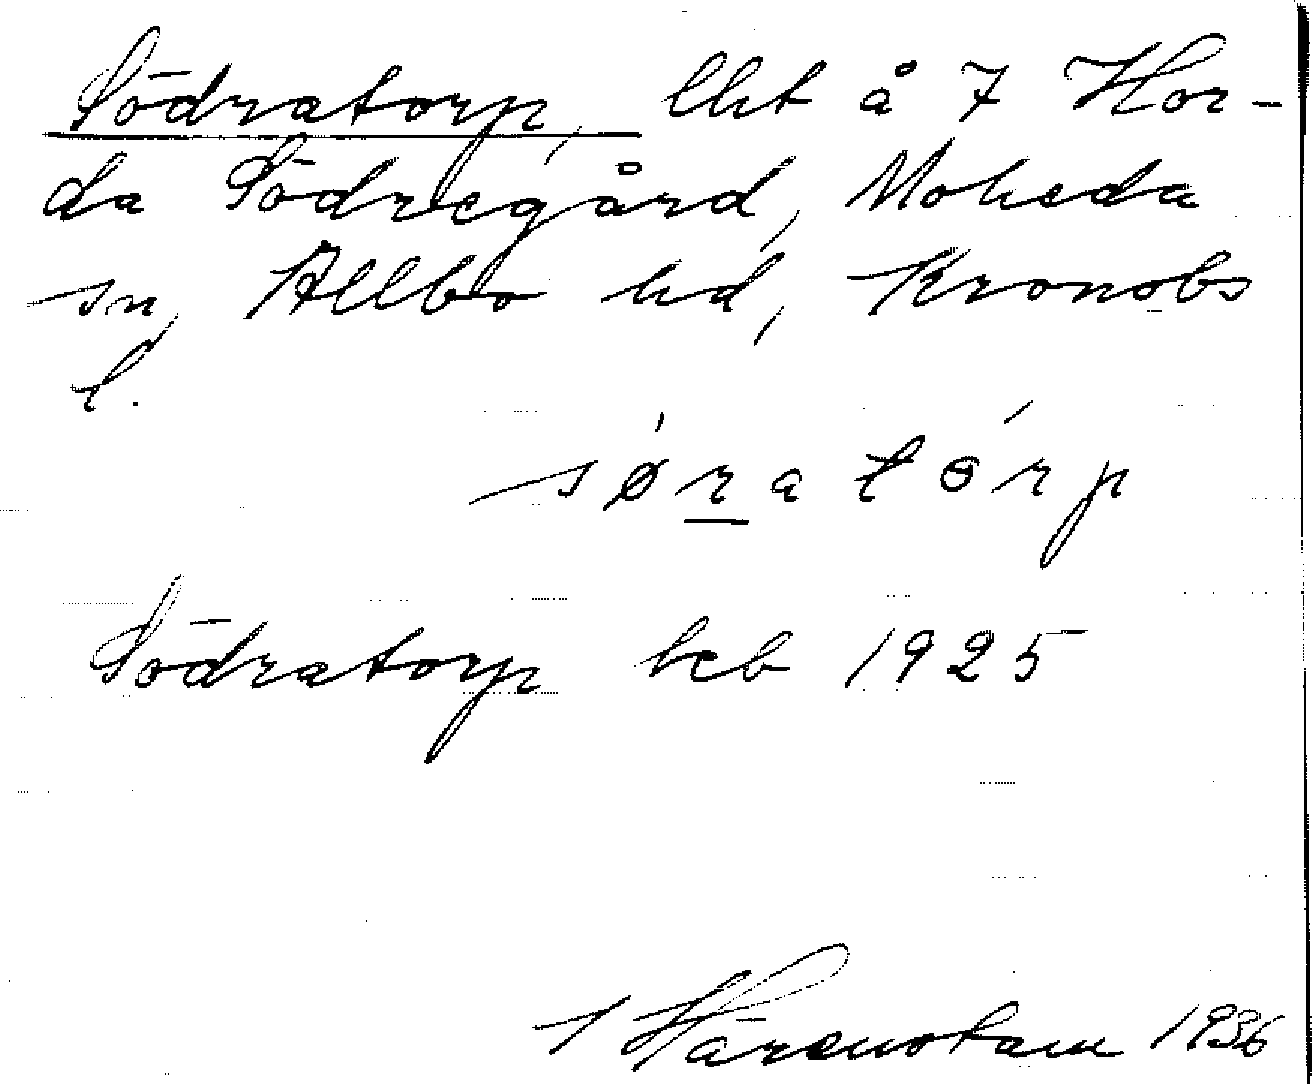 Södratorp, lht å 7 Hor-
da Södregård, Moheda
sn, Allbo hd, Kronobs
l.
sø̀ratórp
Södratorp beb 1925
1936